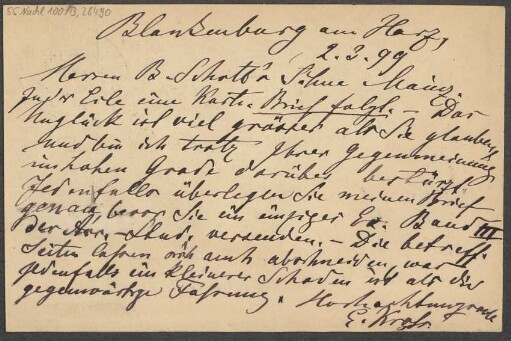 55 Nachl 100/B, 26490
Blankenburg am Harz,
2.3.99
Herren B. Schott's Söhne Mainz.
In der Eile eine Karte. Brief folgt. – Das
Unglück ist viel grösser als Sie glauben
und bin ich trotz Ihrer Gegenmeinung
im hohen Grade darüber bestürzt.
Jedenfalls überlegen Sie meinen Brief
genau bevor Sie ein einziges Ex. Band III
der Stud. versenden. – Die betreff.
Seiten lassen sich auch abschneiden, was
jedenfalls ein kleinerer Schaden ist als die
gegenwärtige Fassung. Hochachtungsvoll
E.